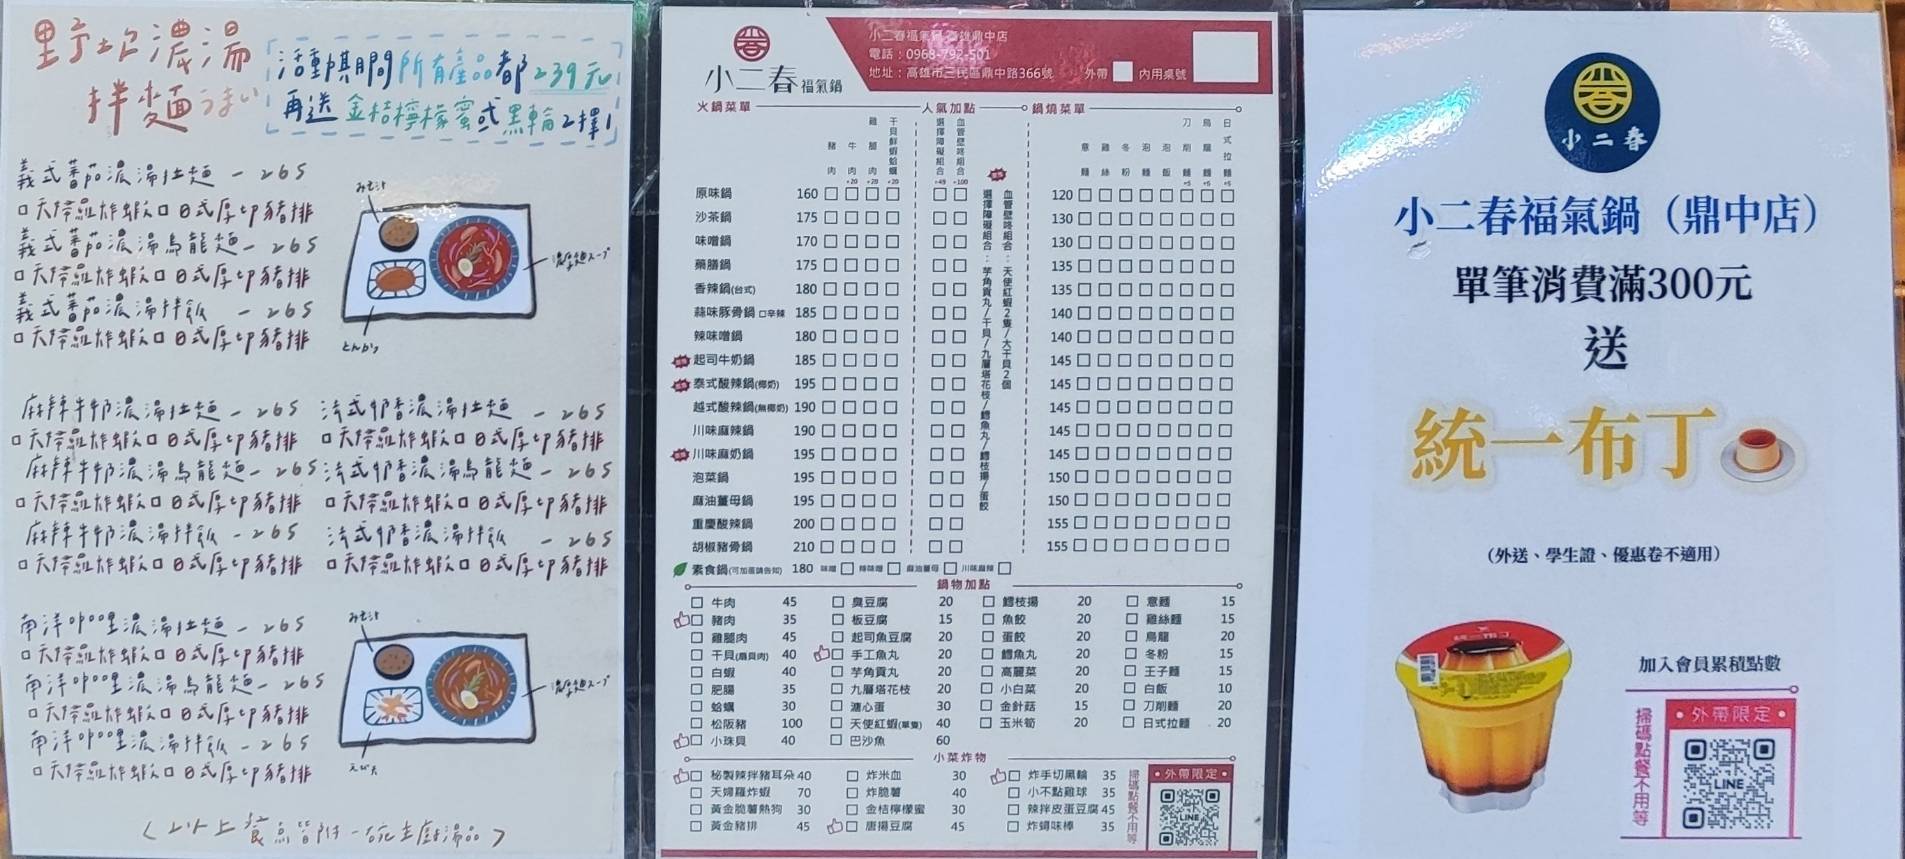 野炊濃湯
拌麵 うまい
活動期間所有產品都239元
再送金桔檸檬蜜或黑輪2擇1
義式蕃茄濃湯拉麵 - 265
□天婦羅炸蝦 □日式厚切豬排
義式蕃茄濃湯烏龍麵 - 265
□天婦羅炸蝦 □日式厚切豬排
義式蕃茄濃湯拌飯 - 265
□天婦羅炸蝦 □日式厚切豬排
濃厚麺スープ
とんかつ
麻辣牛奶濃湯拉麵 - 265
□天婦羅炸蝦 □日式厚切豬排
麻辣牛奶濃湯烏龍麵 - 265
□天婦羅炸蝦 □日式厚切豬排
麻辣牛奶濃湯拌飯 - 265
□天婦羅炸蝦 □日式厚切豬排
法式奶香濃湯拉麵 - 265
□天婦羅炸蝦 □日式厚切豬排
法式奶香濃湯烏龍麵 - 265
□天婦羅炸蝦 □日式厚切豬排
法式奶香濃湯拌飯 - 265
□天婦羅炸蝦 □日式厚切豬排
南洋咖哩濃湯拉麵 - 265
□天婦羅炸蝦 □日式厚切豬排
南洋咖哩濃湯烏龍麵 - 265
□天婦羅炸蝦 □日式厚切豬排
南洋咖哩濃湯拌飯 - 265
□天婦羅炸蝦 □日式厚切豬排
濃厚麺スープ
えび天
<以上餐點皆附一碗主廚湯品>
小二春福氣鍋
小二春福氣鍋 高雄鼎中店
電話：0968-792-501
地址：高雄市三民區鼎中路366號
外帶 □ 內用桌號
火鍋菜單
人氣加點
鍋燒菜單
豬肉 牛肉+20 雞腿肉+20 干貝鮮蝦蛤蠣+20
選擇障礙組合+49 血管壁咚組合+100
意麵 雞絲麵 冬粉 泡麵 泡飯 刀削麵+5 烏龍麵+5 日式拉麵+5
原味鍋 160 □□□□ □□ 120 □□□□□□□□
沙茶鍋 175 □□□□ □□ 130 □□□□□□□□
味噌鍋 170 □□□□ □□ 130 □□□□□□□□
藥膳鍋 175 □□□□ □□ 135 □□□□□□□□
香辣鍋(台式) 180 □□□□ □□ 135 □□□□□□□□
蒜味豚骨鍋 □辛辣 185 □□□□ □□ 140 □□□□□□□□
辣味噌鍋 180 □□□□ □□ 140 □□□□□□□□
起司牛奶鍋 185 □□□□ □□ 145 □□□□□□□□
泰式酸辣鍋(椰奶) 195 □□□□ □□ 145 □□□□□□□□
越式酸辣鍋(無椰奶) 190 □□□□ □□ 145 □□□□□□□□
川味麻辣鍋 190 □□□□ □□ 145 □□□□□□□□
川味麻奶鍋 195 □□□□ □□ 145 □□□□□□□□
泡菜鍋 195 □□□□ □□ 150 □□□□□□□□
麻油薑母鍋 195 □□□□ □□ 150 □□□□□□□□
重慶酸辣鍋 200 □□□□ □□ 155 □□□□□□□□
胡椒豬骨鍋 210 □□□□ □□ 155 □□□□□□□□
血管壁咚組合：天使紅蝦2隻/大干貝2個
選擇障礙組合：芋角貢丸/干貝/九層塔花枝/鱈魚丸/鱈枝揚/蛋餃
素食鍋(可加蛋請告知) 180 味噌 □ 辣味噌 □ 麻油薑母 □ 川味麻辣 □
鍋物加點
□ 牛肉 45 □ 臭豆腐 20 □ 鱈枝揚 20 □ 意麵 15
□ 豬肉 35 □ 板豆腐 15 □ 魚餃 20 □ 雞絲麵 15
□ 雞腿肉 45 □ 起司魚豆腐 20 □ 蛋餃 20 □ 烏龍 20
□ 干貝(扇貝肉) 40 □ 手工魚丸 20 □ 鱈魚丸 20 □ 冬粉 15
□ 白蝦 40 □ 芋角貢丸 20 □ 高麗菜 20 □ 王子麵 15
□ 肥腸 35 □ 九層塔花枝 20 □ 小白菜 20 □ 白飯 10
□ 蛤蠣 30 □ 溏心蛋 30 □ 金針菇 15 □ 刀削麵 20
□ 松阪豬 100 □ 天使紅蝦(單隻) 40 □ 玉米筍 20 □ 日式拉麵 20
□ 小珠貝 40 □ 巴沙魚 60
小菜炸物
□ 秘製辣拌豬耳朵 40 □ 炸米血 30 □ 炸手切黑輪 35
□ 天婦羅炸蝦 70 □ 炸脆薯 40 □ 小不點雞球 35
□ 黃金脆薯熱狗 30 □ 金桔檸檬蜜 30 □ 辣拌皮蛋豆腐 45
□ 黃金豬排 45 □ 唐揚豆腐 45 □ 炸蟳味棒 35
掃碼點餐不用等
•外帶限定•
LINE
小二春
小二春福氣鍋（鼎中店）
單筆消費滿300元
送
統一布丁
（外送、學生證、優惠卷不適用）
統一布丁
加入會員累積點數
掃碼點餐不用等
•外帶限定•
LINE